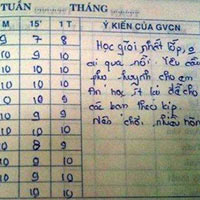 TUẦN THÁNG
M 15' 1T Ý KIẾN CỦA GVCN
9 7 8
9 10 Học giỏi nhất lớp, o
10 10 10 ai qua nổi. Yêu cầu
10 10 10 phụ huynh cho em
10 9 học ít lại để cho
10 10 10 các bạn theo kịp
10 10 nhiều hơn
8 9
10 9 10
10 10
10